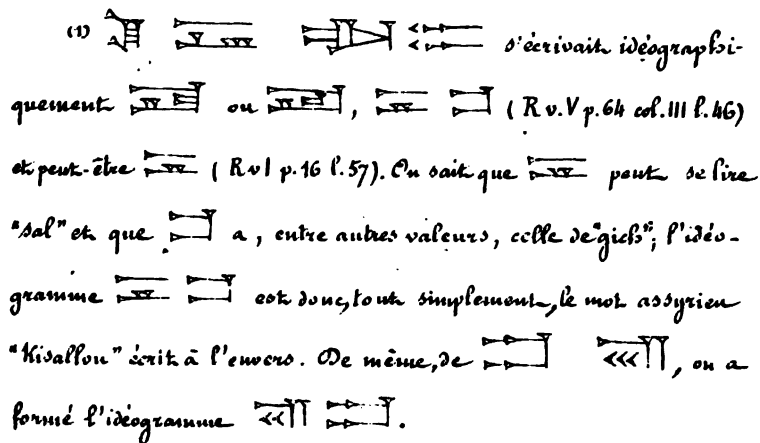 (1) s'écrivait idéographi-
quement ou , (R v. V p. 64 col. III l. 46)
et peut-être (R v I p. 16 l. 57). On sait que peut se lire
"sal" et que a, entre autres valeurs, celle de "gich"; l'idéo-
gramme est donc, tout simplement, le mot assyrien
"Kisallou" écrit à l'envers. De même, de , on a
formé l'idéogramme .